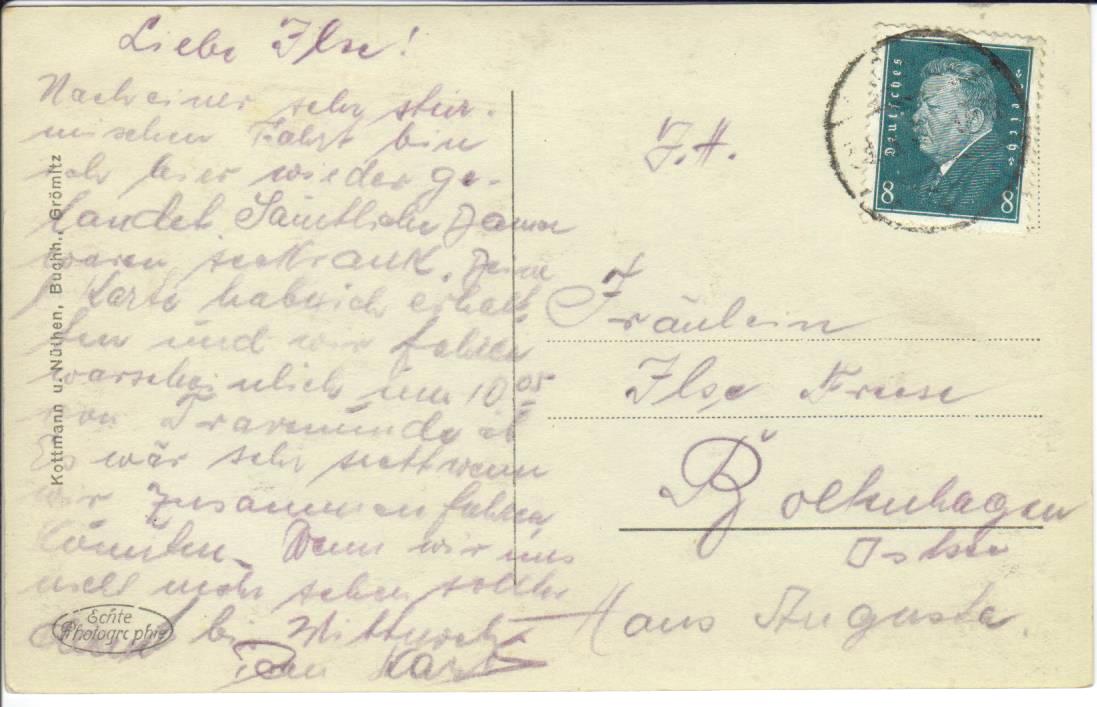 Liebe Ilse!
Nach einer sehr stür-
mischen Fahrt bin
ich hier wieder ge-
landet. Sämtliche Damen
waren seekrank. Deine
Karte hab ich erhal-
ten und wir fahren
warscheinlich um 10 05
von Travemünde ab
Es wär sehr nett wenn
wir zusammen fahren
könnten. Wenn wir uns
nicht mehr sehen sollten
bis Mittwoch
Dein Karl
Kottmann u. Nüthen, Buchh., Grömitz
Echte
Photographie
Deutsches Reich
8 8
J. H.
Fräulein
Ilse Kruse
Boltenhagen
Ostsee
Haus Auguste.